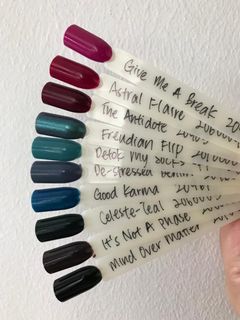 Give Me A Break 20
Astral Flaire 202
The Antidote 2060004
Freudian Flip 20405
Detox my Socks 2010000
De-stressed Denim
Good Karma 20401
Celeste-Teal 2060003
It's Not A Phase
Mind Over Matter